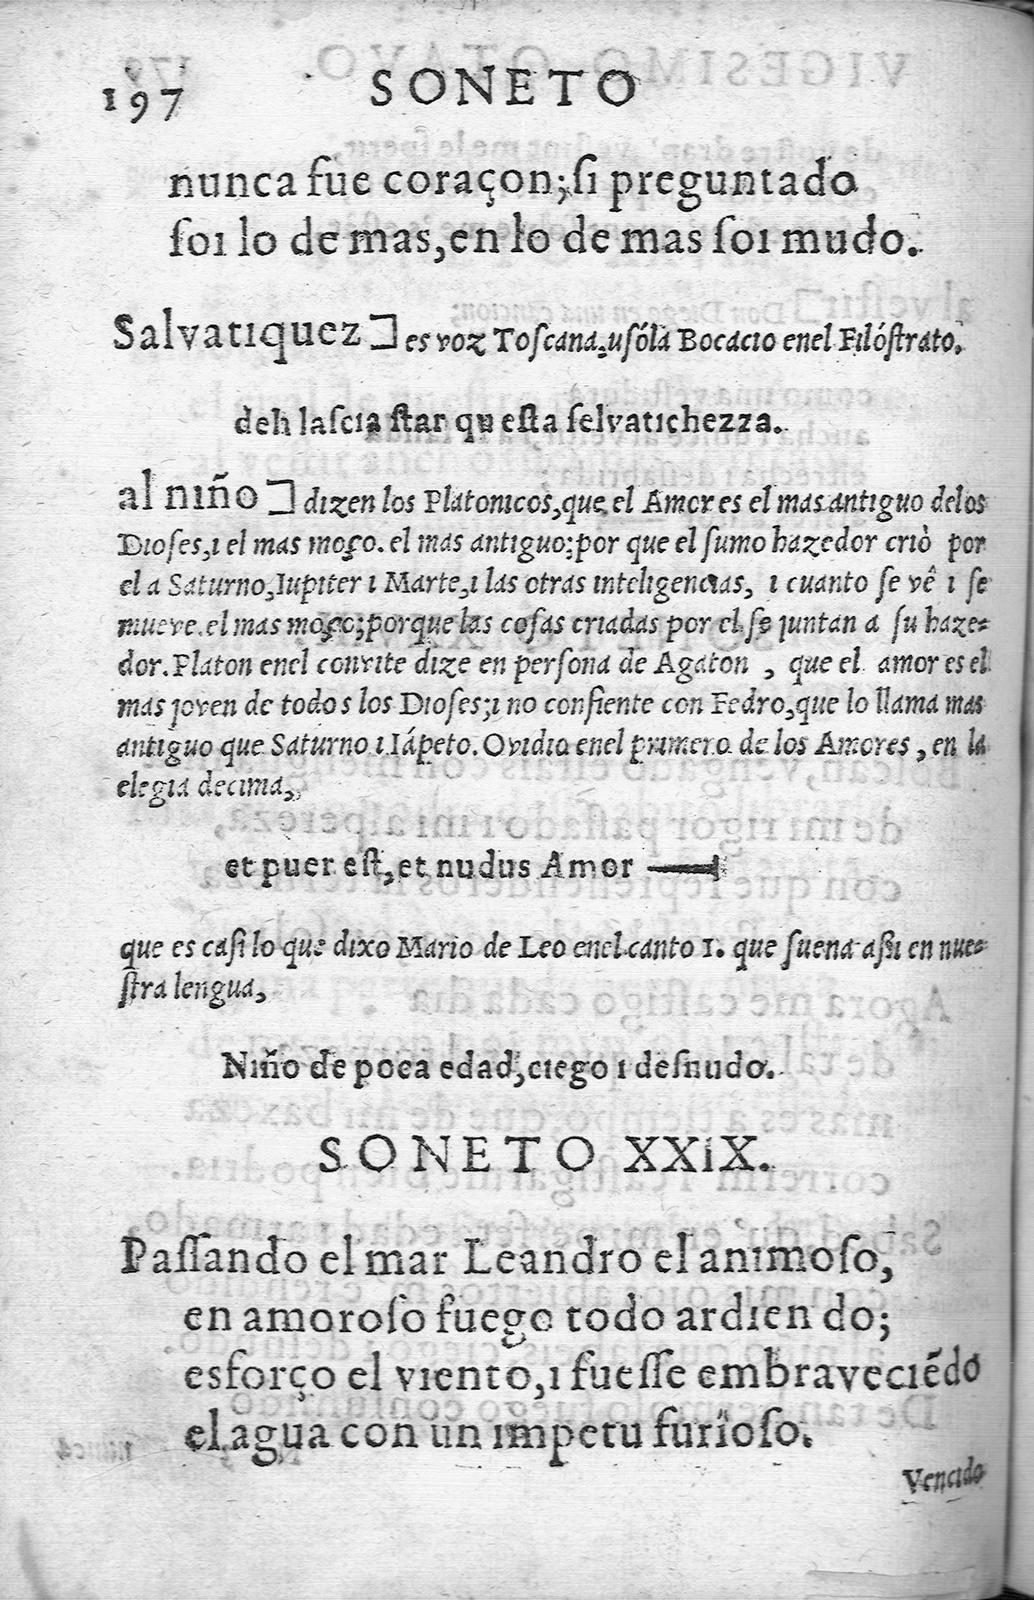 197 SONETO
nunca fue coraçon; si preguntado
soi lo de mas, en lo de mas soi mudo.
Salvatiquez ⊐ es voz Toscana. usóla Bocacio enel Filóstrato.
deh lascia star questa selvatichezza.
al niño ⊐ dizen los Platonicos, que el Amor es el mas antiguo delos
Dioses, i el mas moço. el mas antiguo; por que el sumo hazedor criò por
el a Saturno, Iupiter i Marte, i las otras inteligencias, i cuanto se vê i se
mueve. el mas moço; porque las cosas criadas por el se juntan a su haze-
dor. Platon enel convite dize en persona de Agaton, que el amor es el
mas joven de todos los Dioses; i no consiente con Fedro, que lo llama mas
antiguo que Saturno i Iápeto. Ovidio enel primero de los Amores, en la
elegia decima,
et puer est, et nudus Amor —
que es casi lo que dixo Mario de Leo enel canto 1. que suena assi en nue-
stra lengua,
Niño de poca edad, ciego i desnudo.
SONETO XXiX.
Passando el mar Leandro el animoso,
en amoroso fuego todo ardien do;
esforço el viento, i fuesse embraveciẽdo
el agua con un impetu furioso.
Vencido